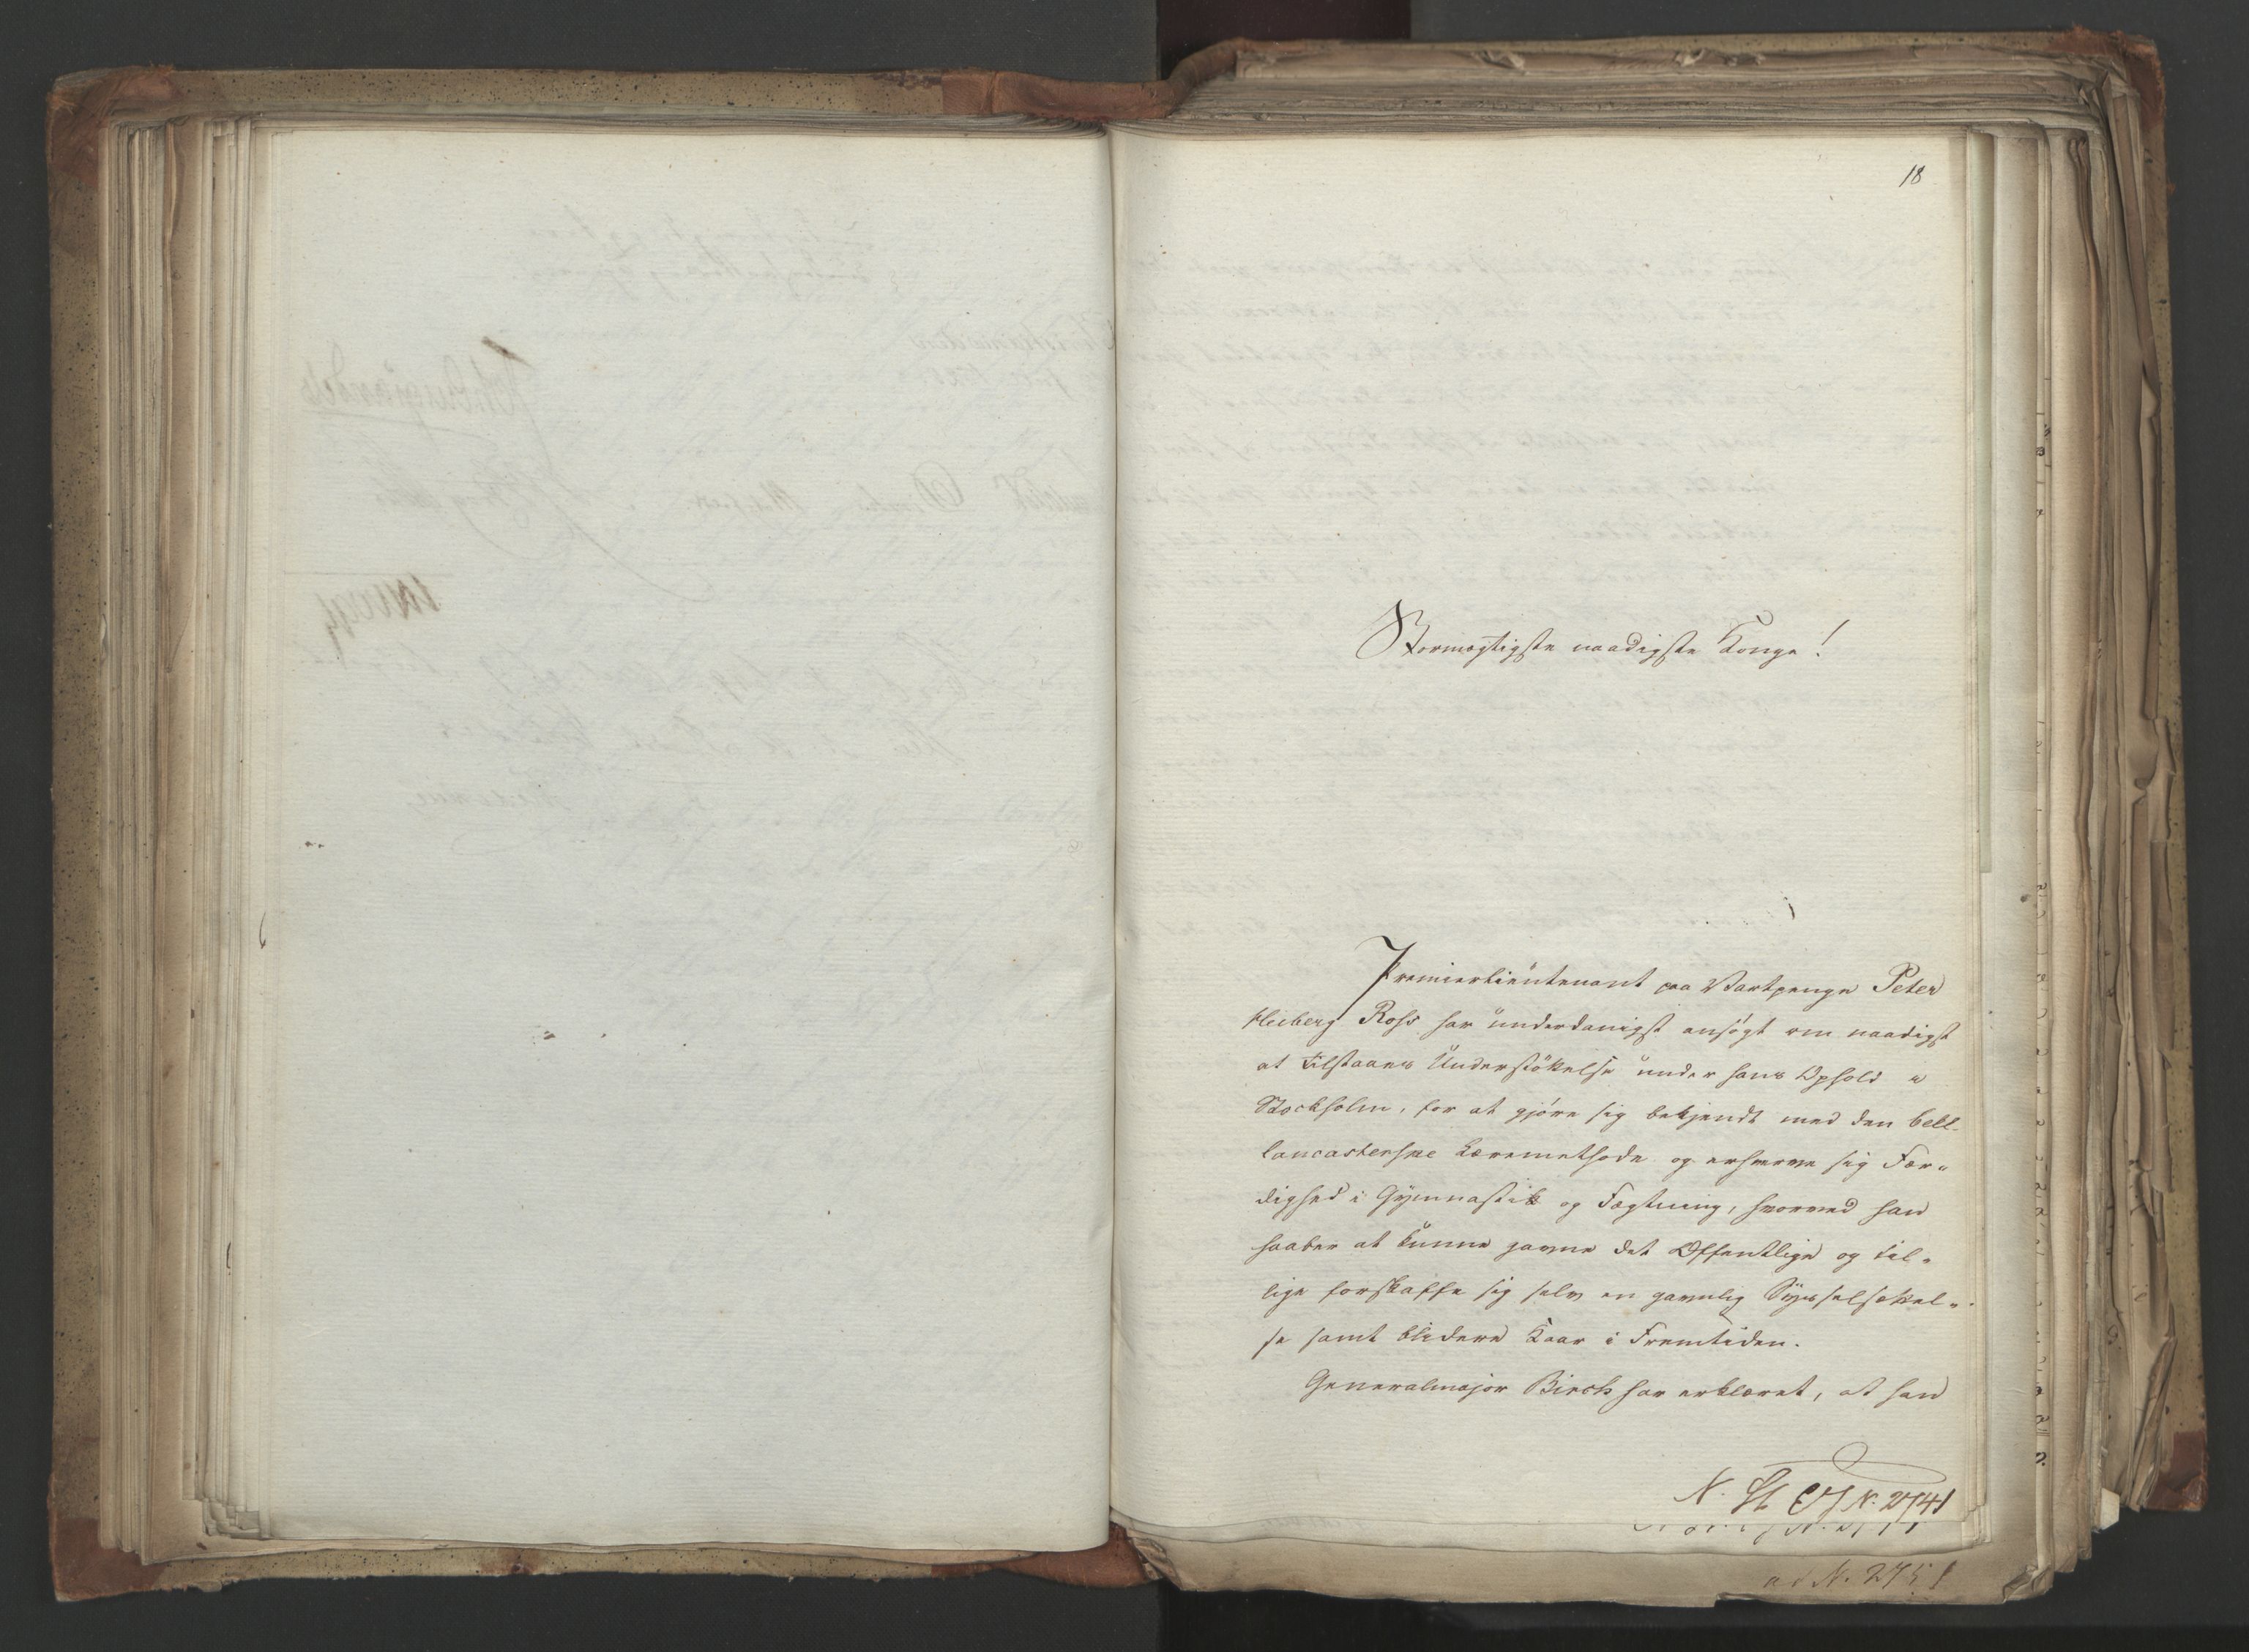 18
Stormægtigste naadigste Konge!
Premierlieutenant paa Vartpenge Peter
Hieberg Ross har underdanigst ansøgt om naadigst
at tilstaaes Understøttelse under hans Ophold i
Stockholm, for at gjöre sig bekjendt med den bell-
lancasterske Læremethode og erhverve sig Fær-
dighed i Gymnastik og Fægtning, hvorved han
haaber at kunne gavne det Offentlige og til-
lige forskaffe sig selv en gavnlig Sysselsættel-
se samt blidere Kaar i Fremtiden.
Generalmajor Birch har erklæret, at han
N. 2741
ad N. 2751